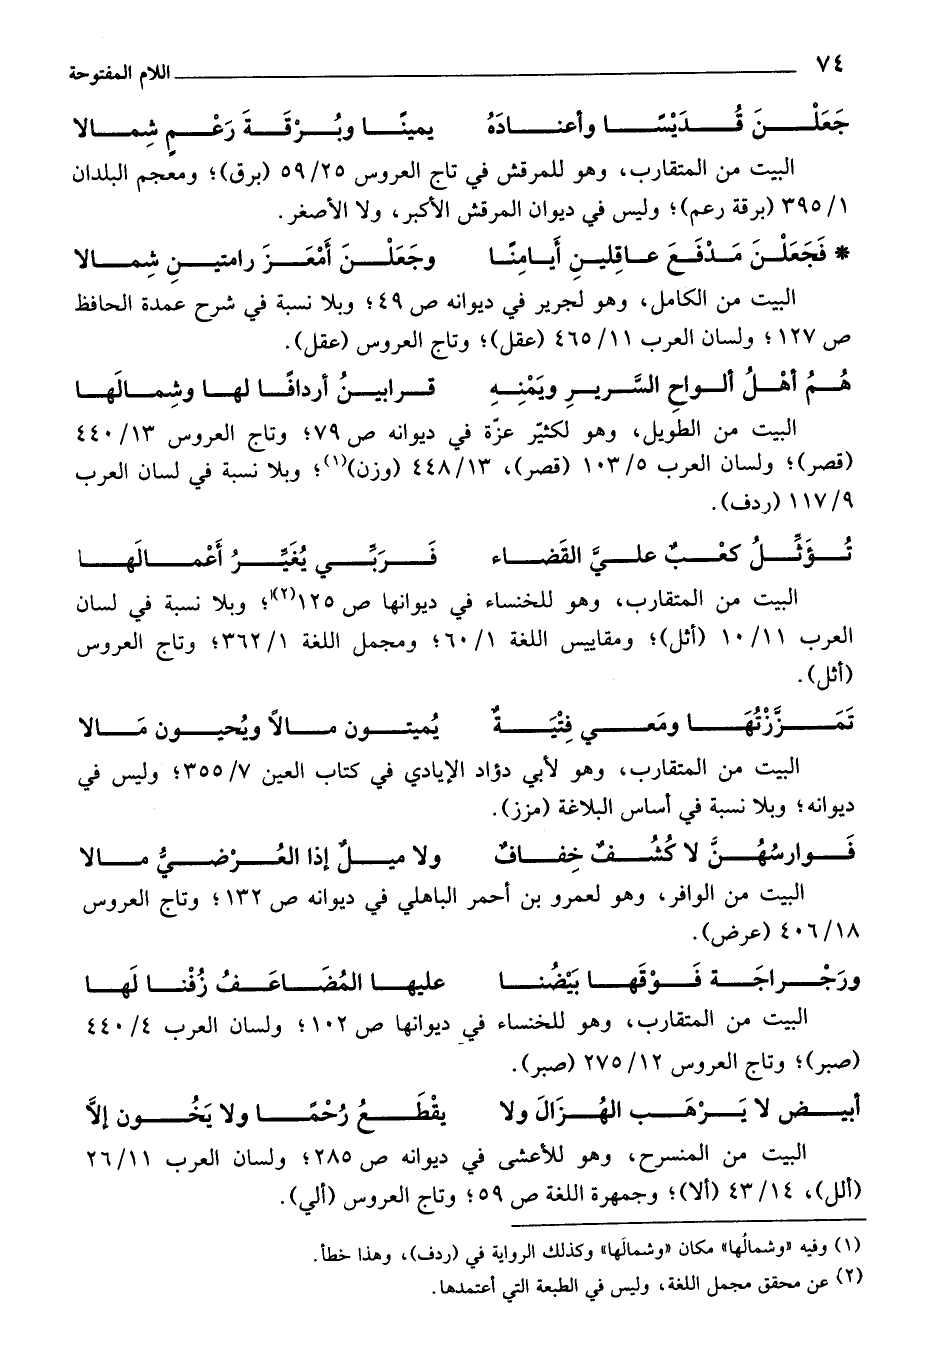 ٧٤ اللام المفتوحة
جَعَلْنَ قُدَيْسًا وأعنادَهُ يمينًا وبُرْقَةَ رَعْمٍ شِمالا
البيت من المتقارب، وهو للمرقش في تاج العروس ٥٩/٢٥ (برق)؛ ومعجم البلدان
٣٩٥/١ (برقة رعم)؛ وليس في ديوان المرقش الأكبر، ولا الأصغر.
* فَجَعَلْنَ مَدْفَعَ عاقِلينِ أَيامِنًا وجَعَلْنَ أَمْعَزَ رامتينِ شِمالا
البيت من الكامل، وهو لجرير في ديوانه ص ٤٩؛ وبلا نسبة في شرح عمدة الحافظ
ص ١٢٧؛ ولسان العرب ٤٦٥/١١ (عقل)؛ وتاج العروس (عقل).
هُمُ أهْلُ ألواحِ السَّريرِ ويَمْنِهِ قرابينُ أردافًا لها وشِمالَها
البيت من الطويل، وهو لكثيّر عزّة في ديوانه ص ٧٩؛ وتاج العروس ٤٤٠/١٣
(قصر)؛ ولسان العرب ١٠٣/٥ (قصر)، ٤٤٨/١٣ (وزن)(١)؛ وبلا نسبة في لسان العرب
١١٧/٩ (ردف).
تُؤَثِّلُ كعْبٌ عليَّ القَضاء فَرَبِّي يُغَيِّرُ أَعْمالَها
البيت من المتقارب، وهو للخنساء في ديوانها ص ١٢٥(٢)؛ وبلا نسبة في لسان
العرب ١٠/١١ (أثل)؛ ومقاييس اللغة ٦٠/١؛ ومجمل اللغة ٣٦٢/١؛ وتاج العروس
(أثل).
تَمَزَّزْتُهَا ومَعي فِتْيَةٌ يُميتون مالاً ويُحيون مَالا
البيت من المتقارب، وهو لأبي دؤاد الإيادي في كتاب العين ٣٥٥/٧؛ وليس في
ديوانه؛ وبلا نسبة في أساس البلاغة (مزز).
فَوارسُهُنَّ لا كُشُفٌ خِفافٌ ولا ميلٌ إذا العُرْضيُّ مالا
البيت من الوافر، وهو لعمرو بن أحمر الباهلي في ديوانه ص ١٣٢؛ وتاج العروس
٤٠٦/١٨ (عرض).
ورَجْراجَة فَوْقَها بَيْضُنا عليها المُضَاعَفُ زُفْنا لَها
البيت من المتقارب، وهو للخنساء في ديوانها ص ١٠٢؛ ولسان العرب ٤٤٠/٤
(صبر)؛ وتاج العروس ٢٧٥/١٢ (صبر).
أبيض لا يَرْهَب الهُزَالَ ولا يقْطَعُ رُحْمًا ولا يَخُون إلاَّ
البيت من المنسرح، وهو للأعشى في ديوانه ص ٢٨٥؛ ولسان العرب ٢٦/١١
(ألل)، ٤٣/١٤ (ألا)؛ وجمهرة اللغة ص ٥٩؛ وتاج العروس (ألي).
(١) وفيه «وشمالُها» مكان «وشمالَها» وكذلك الرواية في (ردف)، وهذا خطأ.
(٢) عن محقق مجمل اللغة، وليس في الطبعة التي أعتمدها.